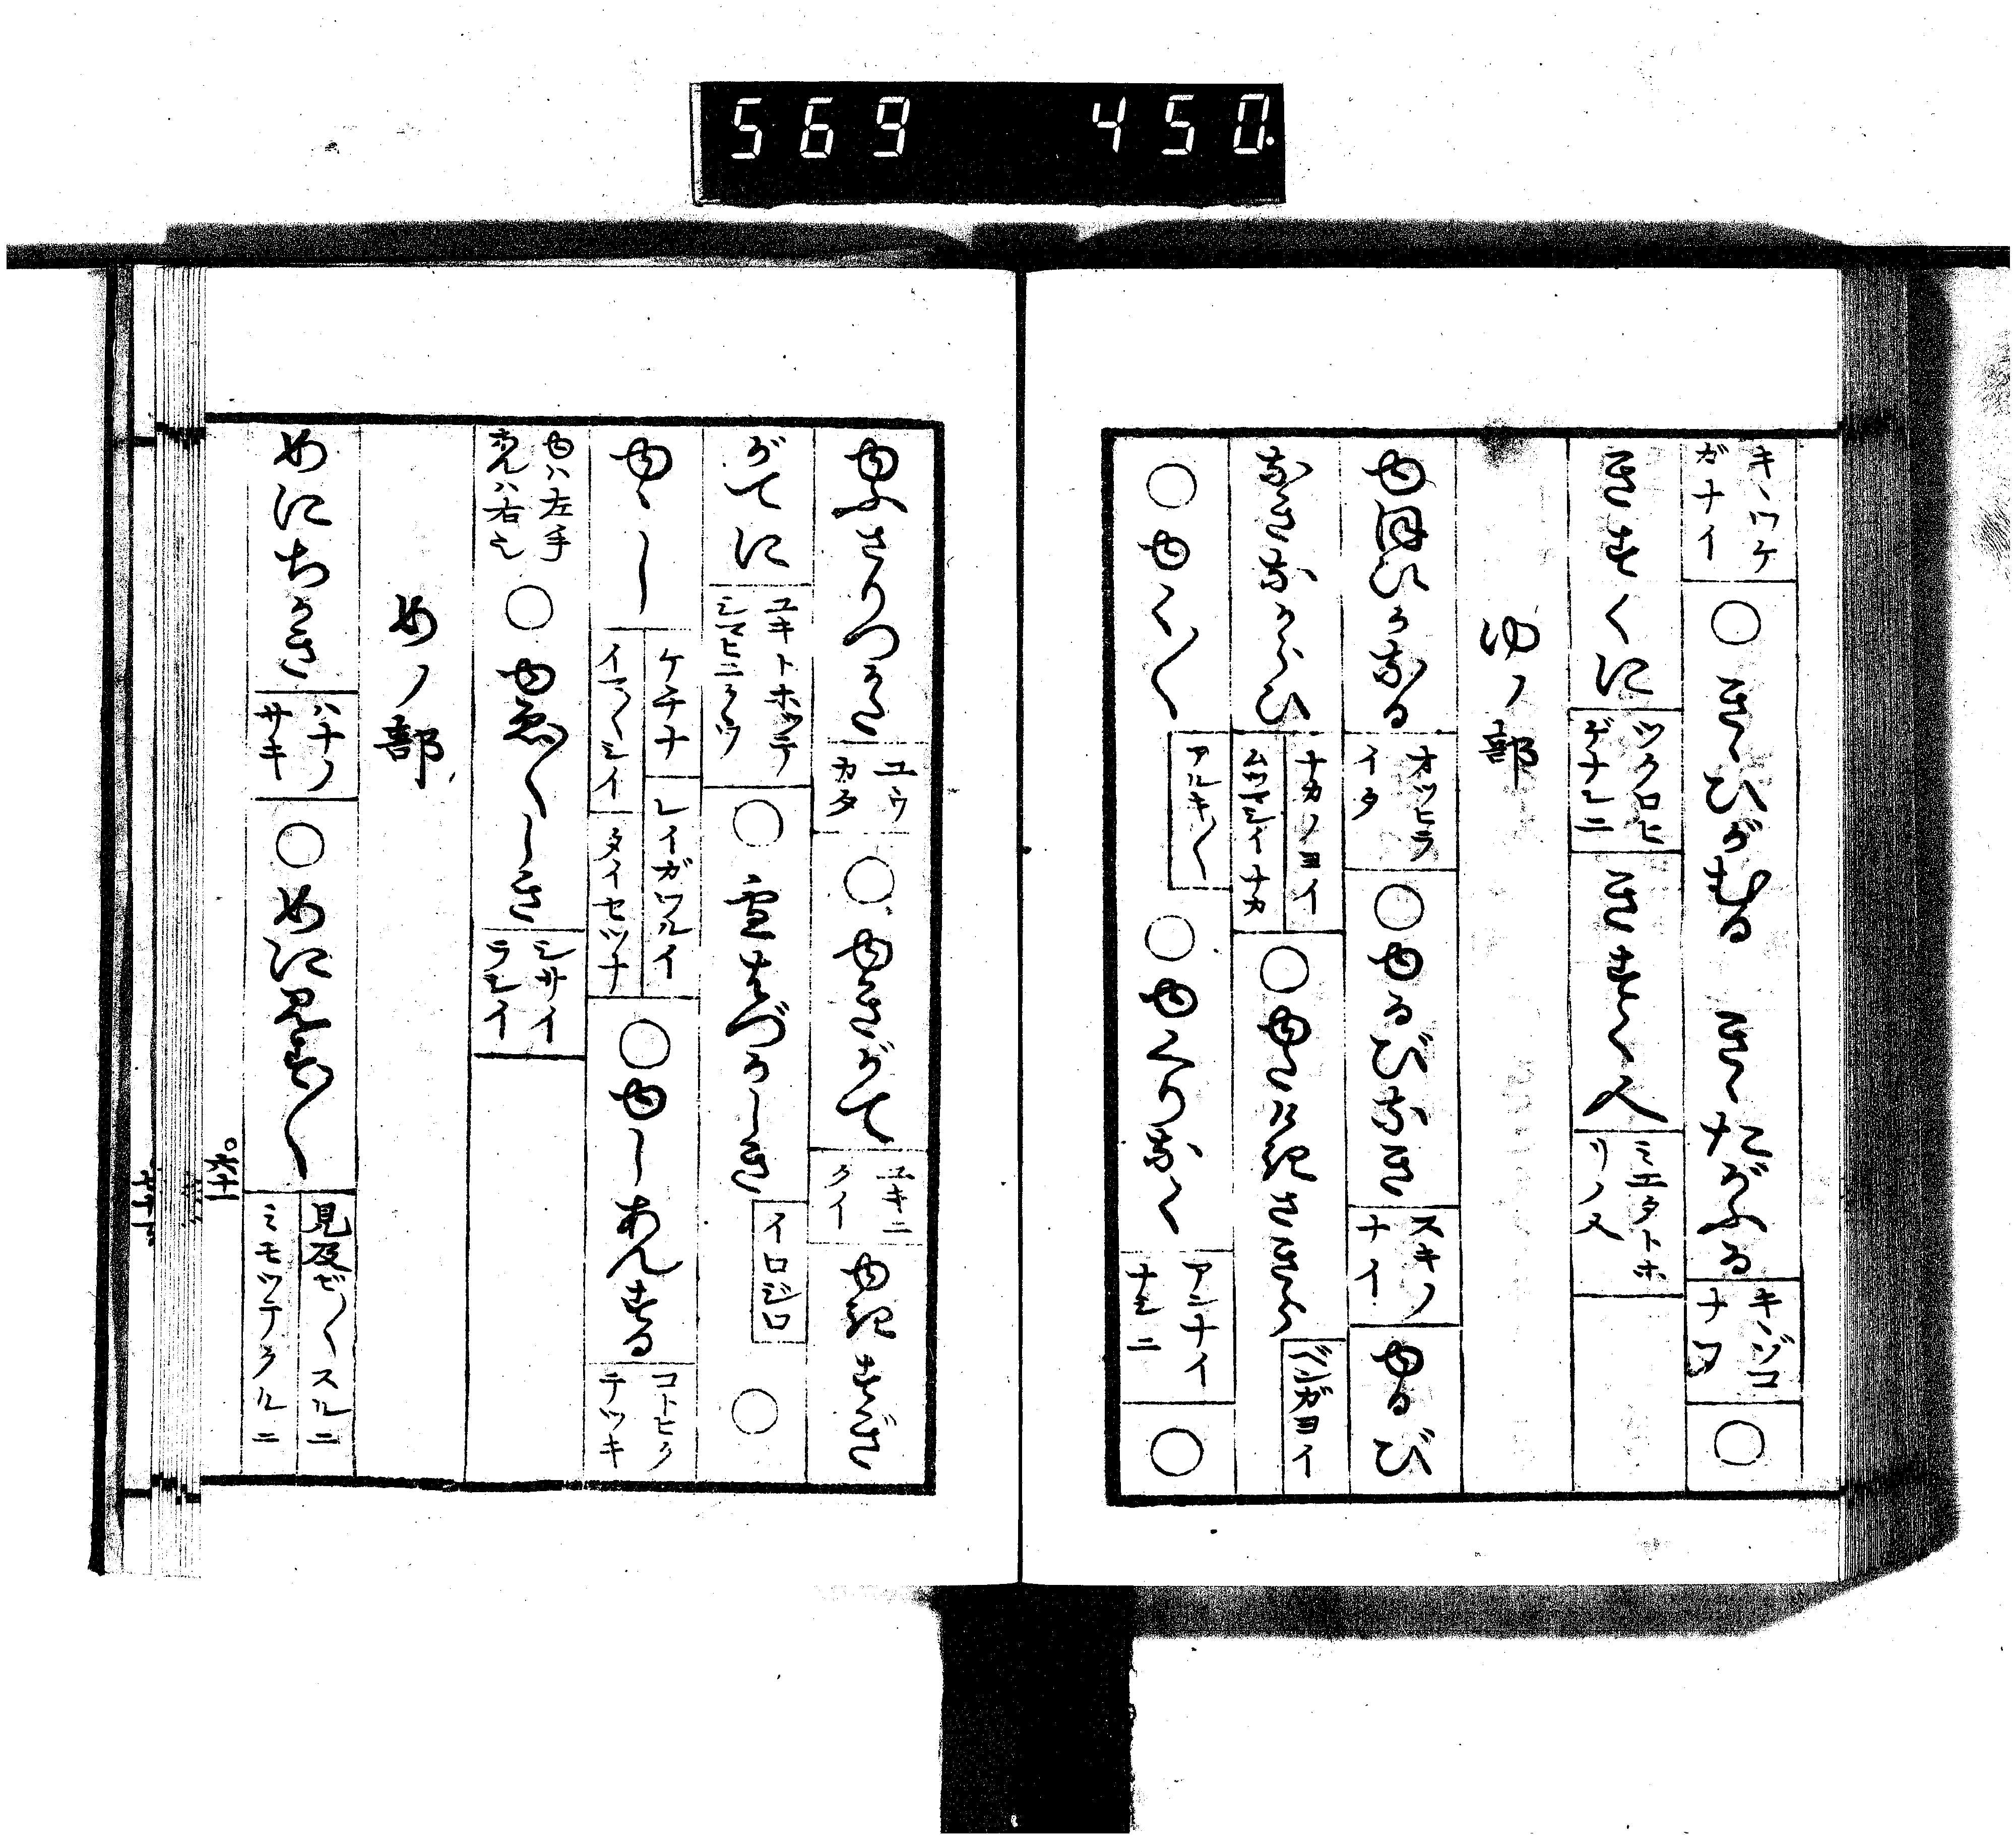 569 450
キヽワケガナイ ○ きゝひがむる きゝたがふる キヽゾコナフ ○
きすくに ツクロヒゲナシニ きすくの人 ミエタトホリノ人
ゆノ部
ゆほびかなる オッヒライタ ○ ゆるびなき スキノナイ ゆるび
なきなからひ ナカノヨイ ムツマシイナカ ○ ゆゑ
○ ゆく〱 アルキ〱 ○ ゆくりなく アンナイナシニ ○
ゆふさりつかた ユウカタ ○ ゆきがて ユキニクイ ゆきすぎ
がてに ユキトホッテシマヒニクウ ○ 雪はづかしき イロジロ ○
ゆゝし ケチナ レイガワルイ イマ〱シイ タイセツナ ○ ゆしあんする コトヒクテツキ
ゆハ左手 あんハ右也 ○ ゆゑ〱しき シサイラシイ
めノ部
めにちかき ハナノサキ ○ めにみす〱 見及ビ〱スルニ ミモッテヲルニ